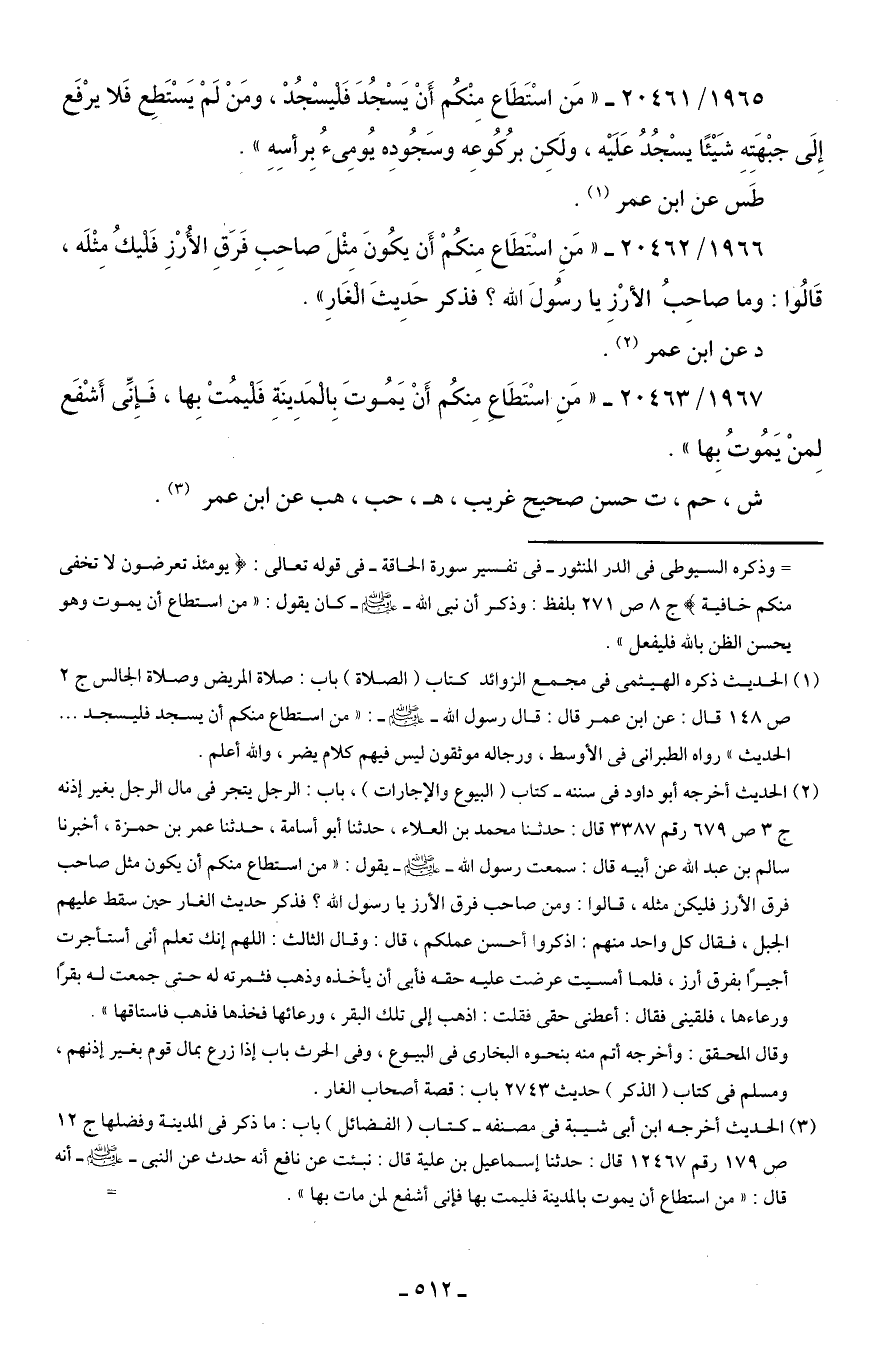 ١٩٦٥/ ٢٠٤٦١ ـ « مَنِ اسْتَطَاعَ مِنْكُم أَنْ يَسْجُدَ فَلْيسْجُدْ ، ومَنْ لَمْ يَسْتَطِع فَلا يرْفَع
إِلَى جبْهَتِه شَيْئًا يسْجُدُ عَلَيْه ، ولَكِن بركُوعِه وسَجُودِه يُومِىءُ بِرأسِهِ » .
طَس عن ابن عمر (١) .
١٩٦٦/ ٢٠٤٦٢ ـ « مَنِ اسْتَطَاعَ مِنكُمْ أَن يكُونَ مِثْلَ صاحِبِ فَرَقِ الأُرْزِ فَلْيكُ مثْلَه ،
قَالُوا : وما صاحِبُ الأرْزِ يا رسُولَ الله ؟ فذكر حَدِيثَ الْغَارِ» .
د عن ابن عمر (٢) .
١٩٦٧/ ٢٠٤٦٣ ـ « مَنِ اسْتَطَاعِ مِنكُم أَنْ يَمُوتَ بِالْمَدِينَةِ فَلْيمُتْ بِها ، فَإِنِّى أَشْفَع
لِمنْ يَمُوتُ بِها » .
ش ، حم ، ت حسن صحيح غريب ، هـ ، حب ، هب عن ابن عمر (٣) .
= وذكره السيوطى فى الدر المنثور ـ فى تفسير سورة الحاقة ـ فى قوله تعالى : ﴿ يومئذ تعرضون لا تخفى
منكم خافية ﴾ ج ٨ ص ٢٧١ بلفظ : وذكر أن نبى الله ـ ﷺ ـ كان يقول : « من استطاع أن يموت وهو
يحسن الظن بالله فليفعل » .
(١) الحديث ذكره الهيثمى فى مجمع الزوائد كتاب ( الصلاة ) باب : صلاة المريض وصلاة الجالس ج ٢
ص ١٤٨ قال : عن ابن عمر قال : قال رسول الله ـ ﷺ ـ : « من استطاع منكم أن يسجد فليسجد ...
الحديث » رواه الطبرانى فى الأوسط ، ورجاله موثقون ليس فيهم كلام يضر ، والله أعلم .
(٢) الحديث أخرجه أبو داود فى سننه ـ كتاب ( البيوع والإجارات ) ، باب : الرجل يتجر فى مال الرجل بغير إذنه
ج ٣ ص ٦٧٩ رقم ٣٣٨٧ قال : حدثنا محمد بن العلاء ، حدثنا أبو أسامة ، حدثنا عمر بن حمزة ، أخبرنا
سالم بن عبد الله عن أبيه قال : سمعت رسول الله ـ ﷺ ـ يقول : « من استطاع منكم أن يكون مثل صاحب
فرق الأرز فليكن مثله ، قالوا : ومن صاحب فرق الأرز يا رسول الله ؟ فذكر حديث الغار حين سقط عليهم
الجبل ، فقال كل واحد منهم : اذكروا أحسن عملكم ، قال : وقال الثالث : اللهم إنك تعلم أنى أستأجرت
أجيرًا بفرق أرز ، فلما أمسيت عرضت عليه حقه فأبى أن يأخذه وذهب فثمرته له حتى جمعت له بقرًا
ورعاءها ، فلقينى فقال : أعطنى حقى فقلت : اذهب إلى تلك البقر ، ورعائها فخذها فذهب فاستاقها » .
وقال المحقق : وأخرجه أتم منه بنحوه البخارى فى البيوع ، وفى الحرث باب إذا زرع بمال قوم بغير إذنهم ،
ومسلم فى كتاب ( الذكر ) حديث ٢٧٤٣ باب : قصة أصحاب الغار .
(٣) الحديث أخرجه ابن أبى شيبة فى مصنفه ـ كتاب ( الفضائل ) باب : ما ذكر فى المدينة وفضلها ج ١٢
ص ١٧٩ رقم ١٢٤٦٧ قال : حدثنا إسماعيل بن علية قال : نبئت عن نافع أنه حدث عن النبى ـ ﷺ ـ أنه
قال : « من استطاع أن يموت بالمدينة فليمت بها فإنى أشفع لمن مات بها » . =
ـ ٥١٢ ـ